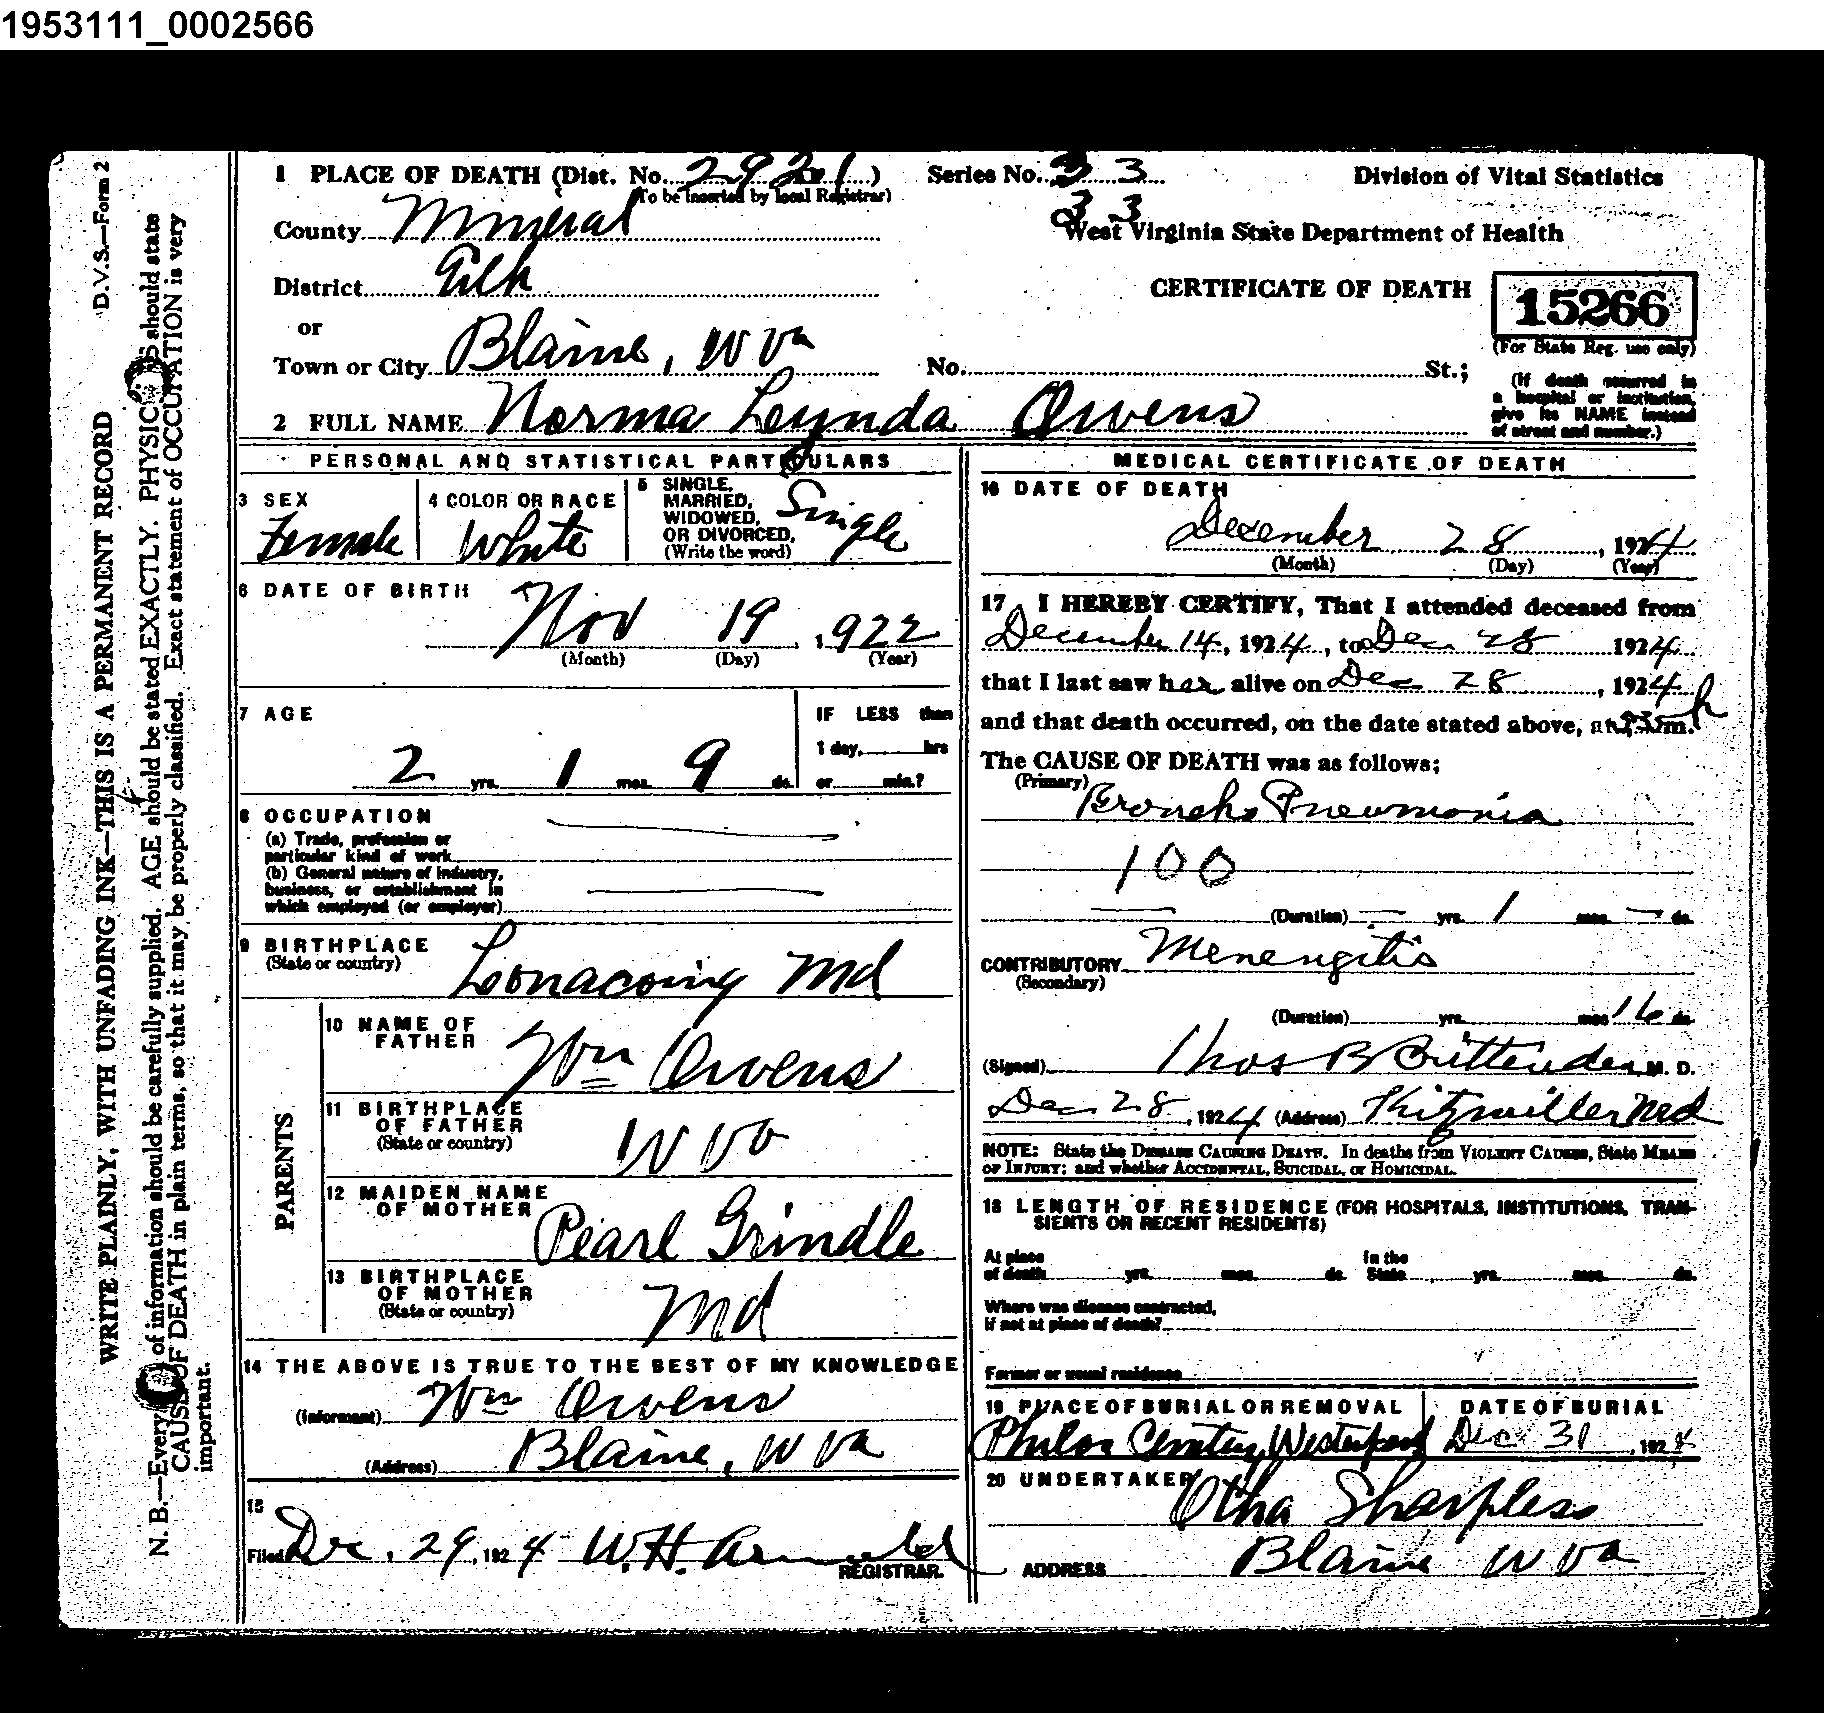 1953111_0002566
1 PLACE OF DEATH (Dist. No. 2921)
(To be inserted by local Registrar)
Series No. 33
33
Division of Vital Statistics
West Virginia State Department of Health
County Mineral
District Elk
or
Town or City Blaine, W Va
CERTIFICATE OF DEATH
15266
(For State Reg. use only)
No. St.;
(If death occurred in
a hospital or institution,
give its NAME instead
of street and number.)
2 FULL NAME Norma Leynda Owens
PERSONAL AND STATISTICAL PARTICULARS
3 SEX
Female
4 COLOR OR RACE
White
5 SINGLE,
MARRIED,
WIDOWED,
OR DIVORCED,
(Write the word)
Single
6 DATE OF BIRTH
Nov 19, 1922
(Month) (Day) (Year)
7 AGE
2 yrs. 1 mos. 9 ds.
IF LESS than
1 day, hrs
or min.?
8 OCCUPATION
(a) Trade, profession or
particular kind of work
(b) General nature of industry,
business, or establishment in
which employed (or employer)
9 BIRTHPLACE
(State or country)
Lonaconing Md
PARENTS
10 NAME OF
FATHER
Wm Owens
11 BIRTHPLACE
OF FATHER
(State or country)
W Va
12 MAIDEN NAME
OF MOTHER
Pearl Grindle
13 BIRTHPLACE
OF MOTHER
(State or country)
Md
14 THE ABOVE IS TRUE TO THE BEST OF MY KNOWLEDGE
(Informant) Wm Owens
(Address) Blaine, W Va
15
Filed Dec. 29, 1924 W. H. Arnold
REGISTRAR.
MEDICAL CERTIFICATE OF DEATH
16 DATE OF DEATH
December 28, 1924
(Month) (Day) (Year)
17 I HEREBY CERTIFY, That I attended deceased from
December 14, 1924, to Dec 28 1924
that I last saw her alive on Dec 28, 1924
and that death occurred, on the date stated above, at m.
The CAUSE OF DEATH was as follows:
(Primary)
Broncho Pneumonia
100
(Duration) — yrs. 1 mos. — ds.
CONTRIBUTORY Menengitis
(Secondary)
(Duration) yrs. mos 16 ds.
(Signed) Thos B Crittenden M. D.
Dec 28, 1924 (Address) Kitzmiller Md
NOTE: State the DISEASE CAUSING DEATH. In deaths from VIOLENT CAUSES, State MEANS
OF INJURY; and whether ACCIDENTAL, SUICIDAL, or HOMICIDAL.
18 LENGTH OF RESIDENCE (FOR HOSPITALS, INSTITUTIONS, TRAN-
SIENTS OR RECENT RESIDENTS)
At place
of death yrs. mos. ds.
In the
State yrs. mos. ds.
Where was disease contracted,
if not at place of death?
Former or usual residence
19 PLACE OF BURIAL OR REMOVAL
Philos Cemetery, Westernport
DATE OF BURIAL
Dec 31, 1924
20 UNDERTAKER
Otha Sharpless
ADDRESS Blaine W Va
D.V.S.—Form 2
WRITE PLAINLY, WITH UNFADING INK—THIS IS A PERMANENT RECORD
N. B.—Every of information should be carefully supplied. AGE should be stated EXACTLY. PHYSICIANS should state
CAUSE OF DEATH in plain terms, so that it may be properly classified. Exact statement of OCCUPATION is very
important.